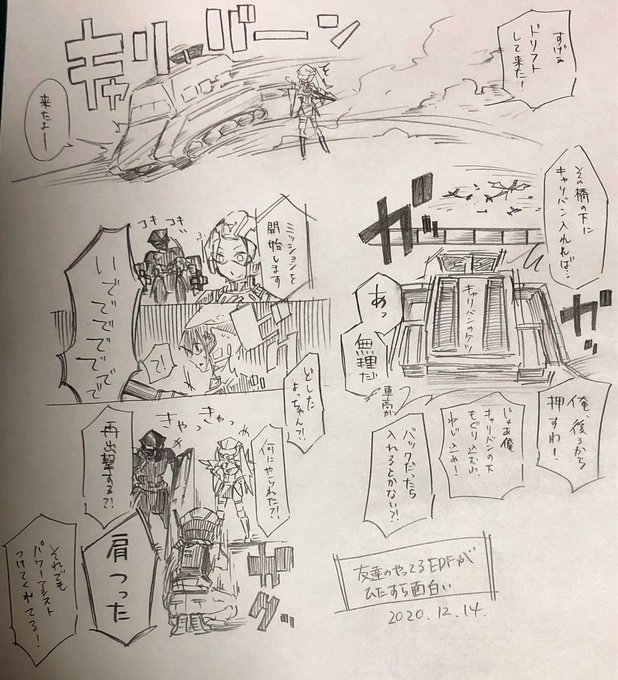 すげぇ
ドリフト
して来た！
キャリ・バーン
来たよー
その橋の下に
キャリバン入れれば…
ガッ
ガッ
キャリバンのケツ
あっ
無理だ
車高が
俺、後ろから
押すわ！
じゃあ俺
キャリバンの下
もぐり込むわ
バックだったら
入れるとかない？
ミッションを
開始します
コキ
コキ
いででででででで
どした
よっちゃん？！
きゃっきゃっ
何にやられた？！
再出撃する？！
肩つった
それでも
パワーアシスト
つけてくれてる！
友達のやってるEDFが
ひたすら面白い
2020.12.14.